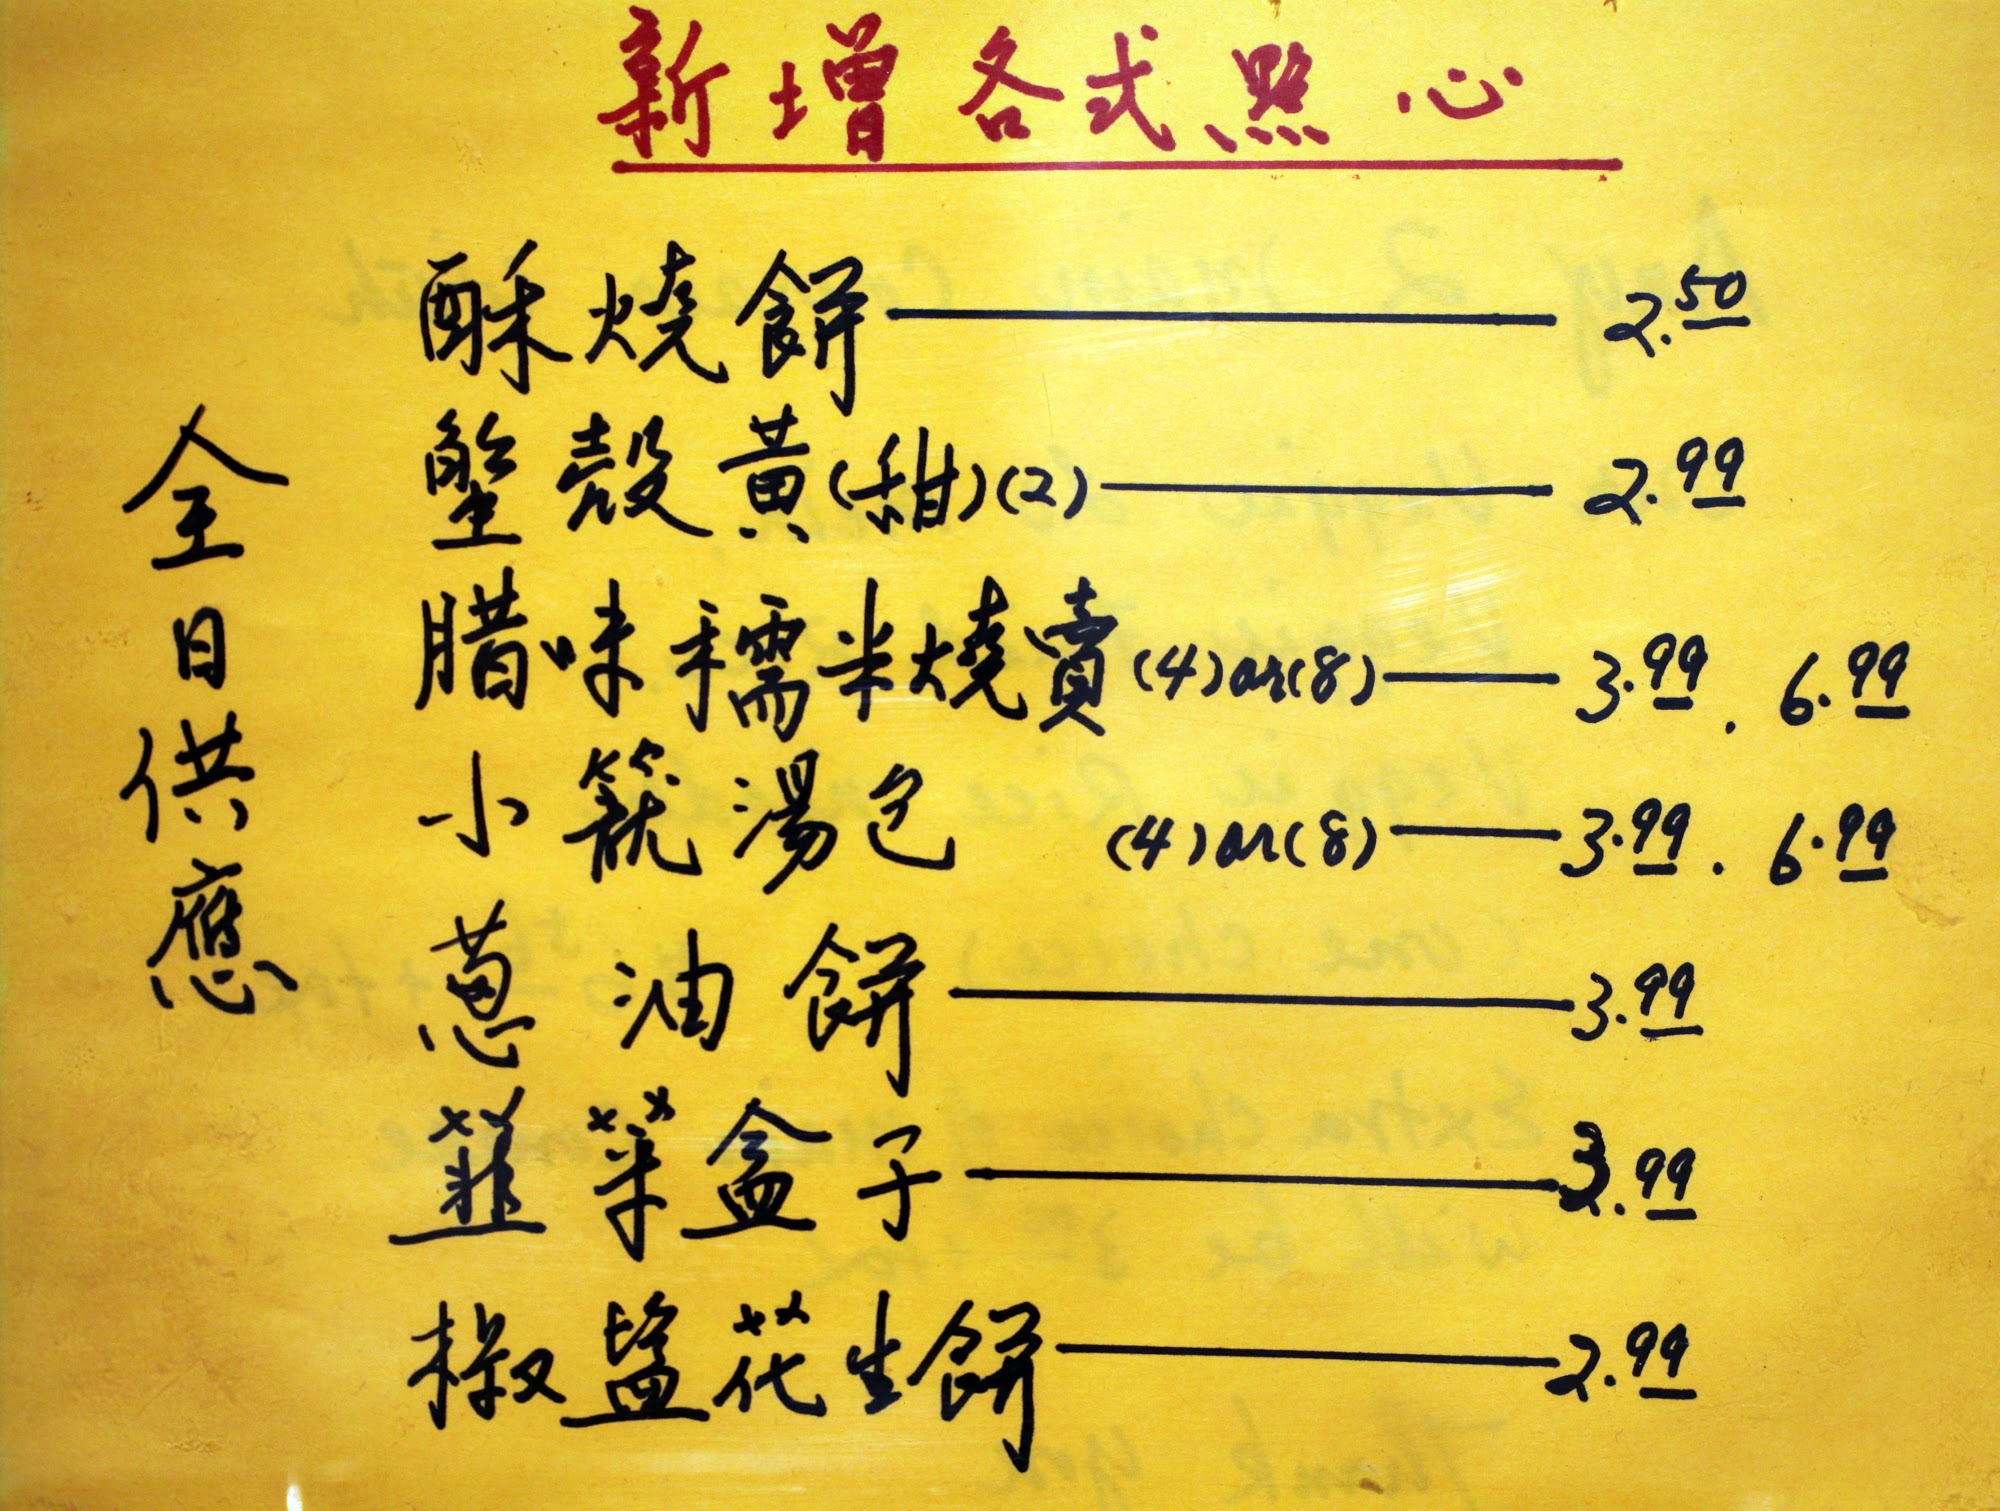 新增各式點心
全日供應
酥燒餅 2.50
蟹殼黃(甜)(2) 2.99
腊味糯米燒賣(4)or(8) 3.99. 6.99
小籠湯包 (4)or(8) 3.99. 6.99
蔥油餅 3.99
韮菜盒子 3.99
椒鹽花生餅 2.99